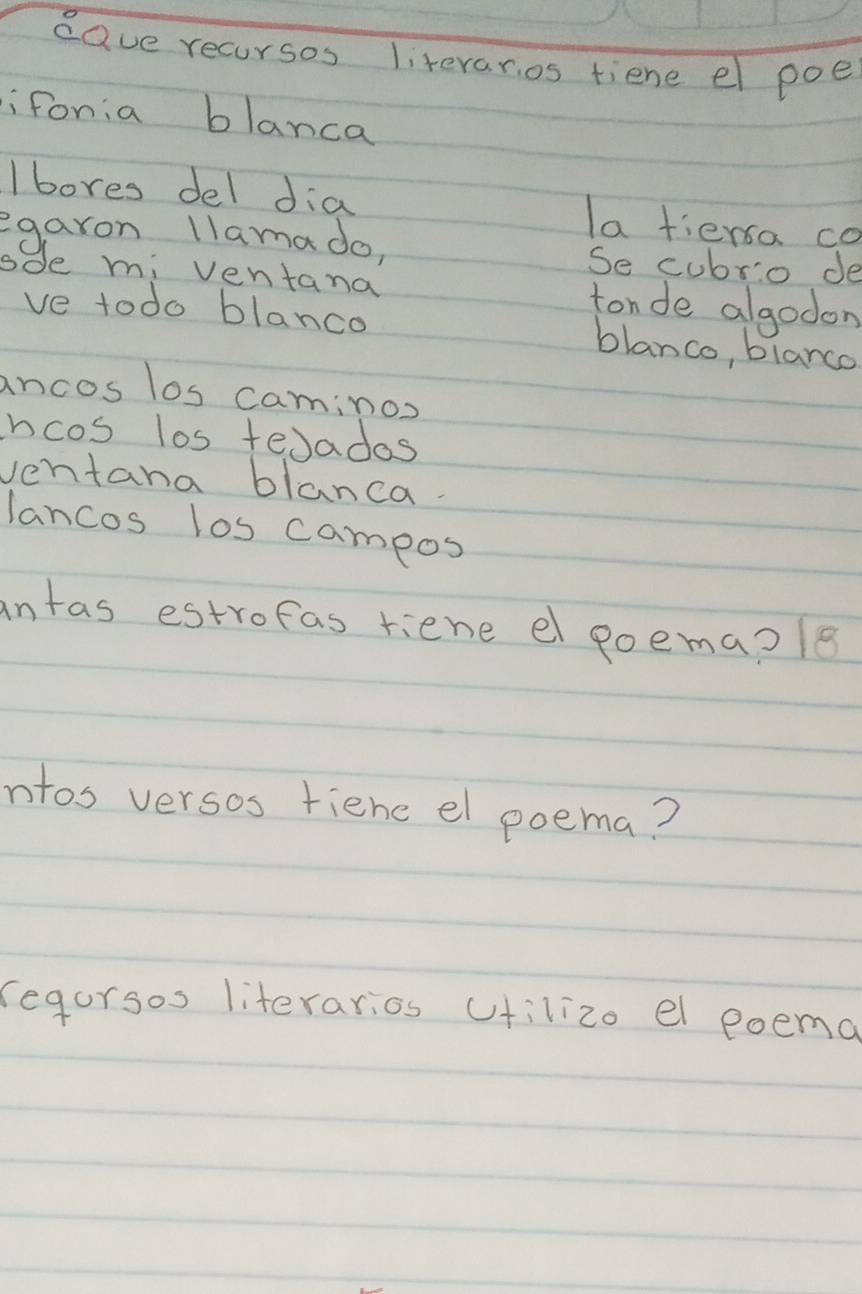 ¿Que recursos literarios tiene el poe
ifonia blanca
lbores del dia
egaron llamado,
sde mi ventana
ve todo blanco
la tierra co
Se cubrio de
ton de algodon
blanco, blanco
ancos los caminos
ncos los tejados
ventana blanca.
lancos los campos
antas estrofas tiene el poema?
ntos versos tiene el poema?
reqursos literarios utilizo el poema